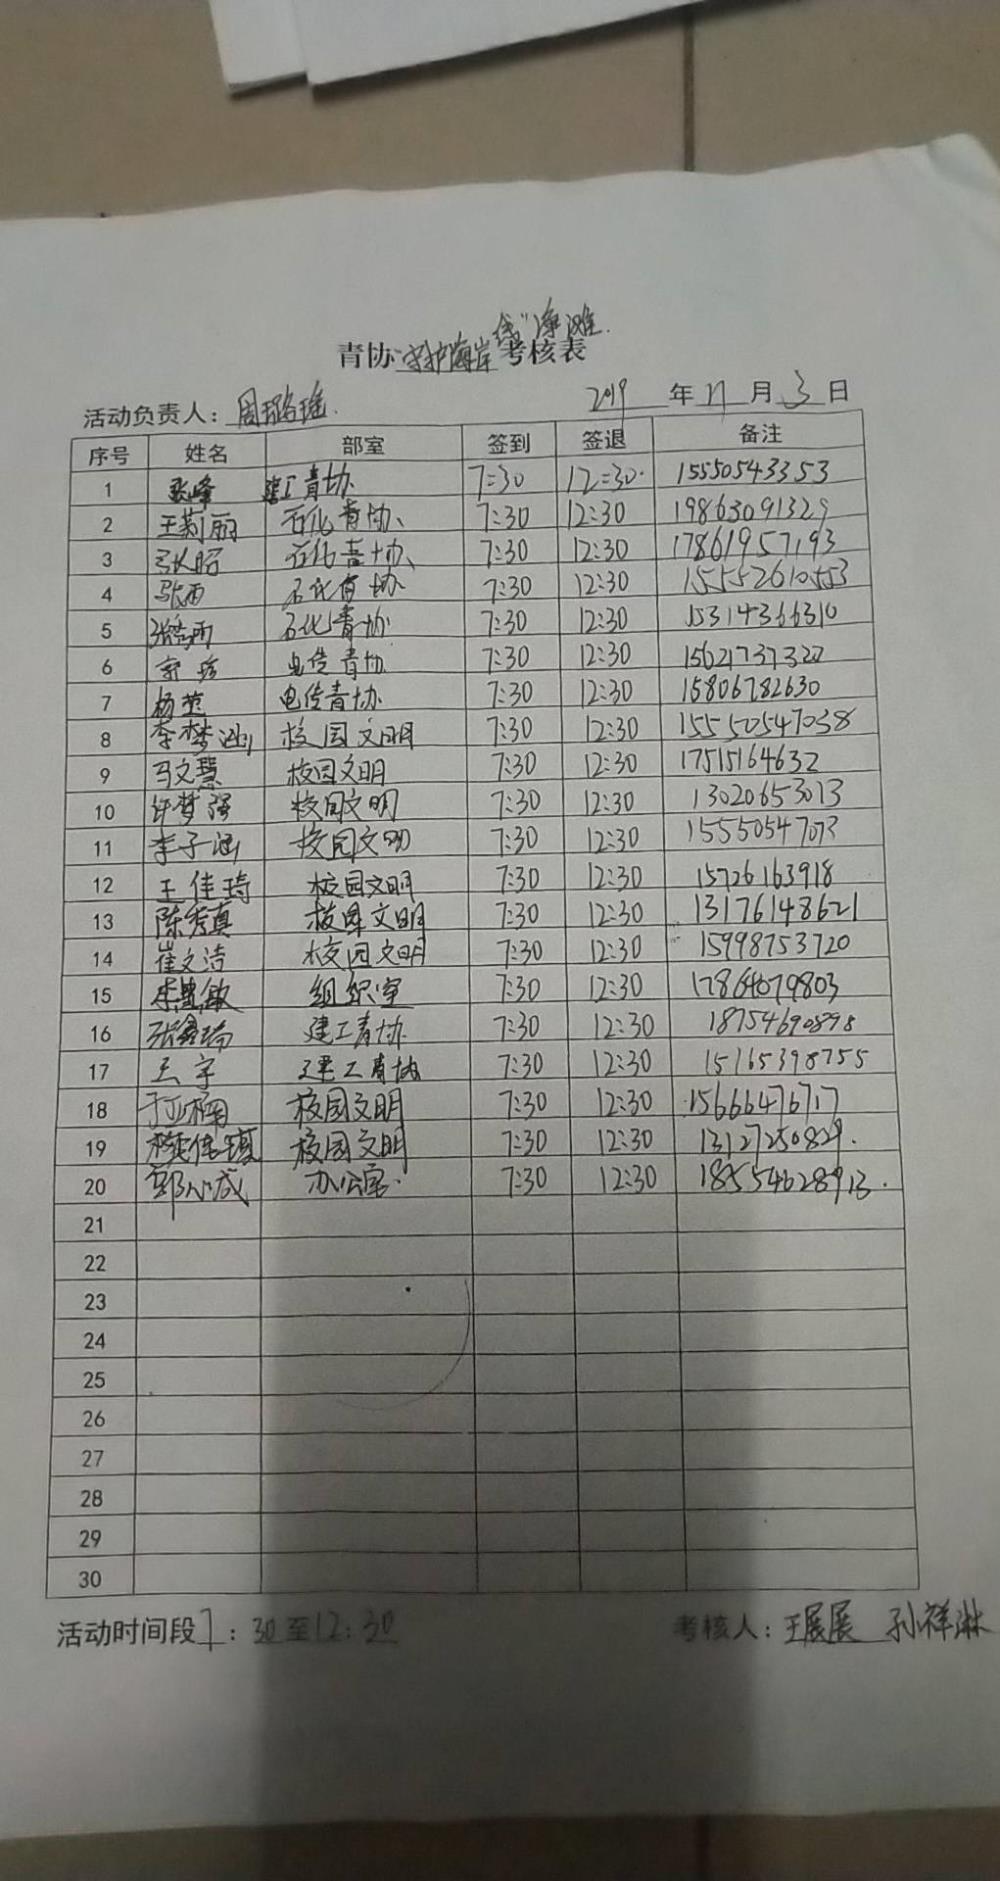 青协"守护海岸线"净滩考核表
活动负责人：周璐瑶 2019年11月3日
序号 姓名 部室 签到 签退 备注
1 张峰 建工青协 7:30 12:30 15550543353
2 王莉丽 石化青协 7:30 12:30 19863091329
3 张昭 石化青协 7:30 12:30 17861957193
4 石化青协 7:30 12:30 15552610553
5 石化青协 7:30 12:30 15314366310
6 电传青协 7:30 12:30 15621737322
7 杨范 电传青协 7:30 12:30 15806782630
8 李梦涵 校园文明 7:30 12:30 155505547038
9 马文慧 校园文明 7:30 12:30 17515164632
10 许梦强 校园文明 7:30 12:30 13020653013
11 李子涵 校园文明 7:30 12:30
12 王佳琦 校园文明 7:30 12:30 15726163918
13 陈秀真 校园文明 7:30 12:30 13176148621
14 崔文洁 校园文明 7:30 12:30 15998753720
15 组织室 7:30 12:30 17864079803
16 张鑫瑞 建工青协 7:30 12:30 18754690898
17 王宇 建工青协 7:30 12:30 15165398755
18 于亚楠 校园文明 7:30 12:30 15666476717
19 校园文明 7:30 12:30 13127250829.
20 郭心成 办公室 7:30 12:30 18554628913.
21
22
23
24
25
26
27
28
29
30
活动时间段7：30至12：30 考核人：王展展 孙祥淋